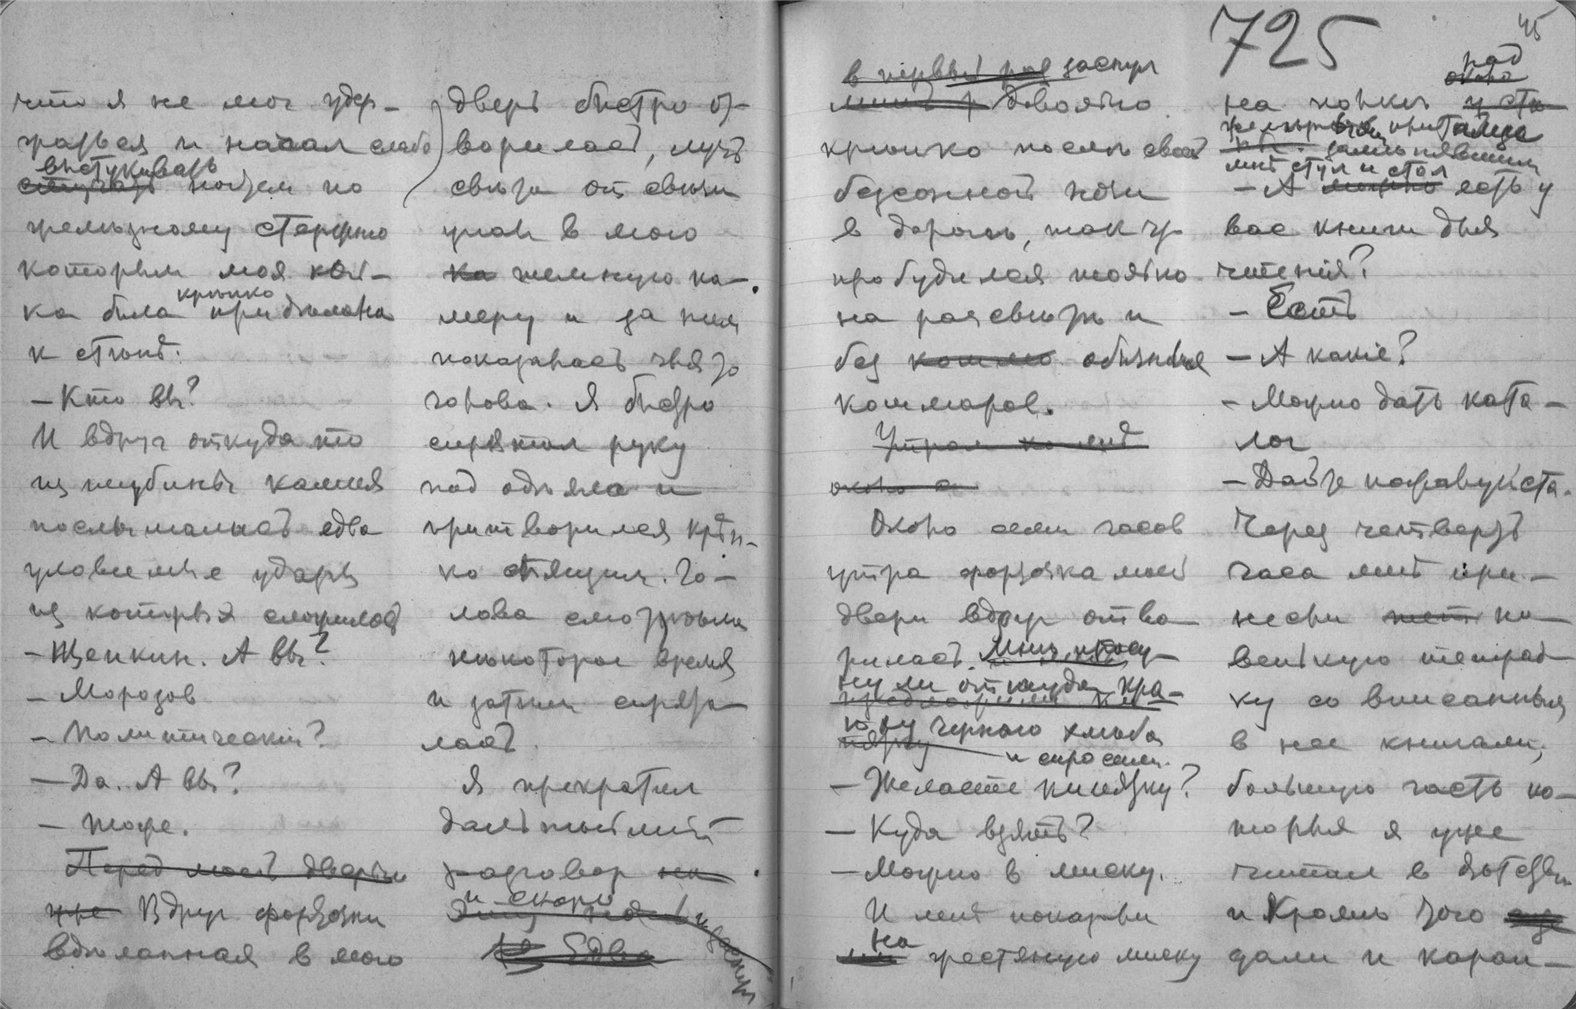 что я не мог удер-
жаться и начал слабо
выстукивать
стучать ногтем по
желѣзному стержню
которым моя кой-
крѣпко
ка была придѣлана
к стѣнѣ.
– Кто вы?
И вдруг откуда то
из глубины камня
послышались едва
уловимые удары
из которых сложилось
– Щепкин. А вы?
– Морозов
– Политическій?
– Да. А вы?
– Тоже.
Перед моей дверью
уже Вдруг форточки
вдѣланная в мою
дверь быстро от-
ворилась, луч
свѣта от свѣчи
упал в мою
ка темную ка-
меру и за ним
показалась чья то
голова. Я быстро
спрятал руку
под одѣяло и
притворился крѣп-
ко спящим. Го-
лова смотрѣла
нѣкоторое время
и затѣм спрята-
лась.
Я прекратил
дальнѣйшій
разговор
и скоро
и заснул
едва
725
45
в первый раз заснул
довольно
крѣпко послѣ своей
безсонной ночи
в дорогѣ, так что
пробудился только
на разсвѣтѣ и
без обычных
кошмаров.
Утром ко мнѣ
около
Около семи часов
утра форточка моей
двери вдруг отво-
рилась. Мнѣ просу-
нули оттуда кра-
юху черного хлѣба
и спросили.
– Желаете кипятку?
– Куда взять?
– Можно в миску.
И мнѣ показали
на
жестяную миску
над
около
на полкѣ у сто
замѣнявшими
мнѣ стул и стол
– А можно есть у
вас книги для
чтенія?
– Есть
– А какіе?
– Можно дать ката-
лог
– Дайте пожалуйста.
Через четверть
часа мнѣ при-
несли ма-
ленькую тетрад-
ку со вписанными
в нее книгами,
большую часть ко-
торых я уже
читал в дѣтствѣ
и Кромѣ того еще
дали и каран-